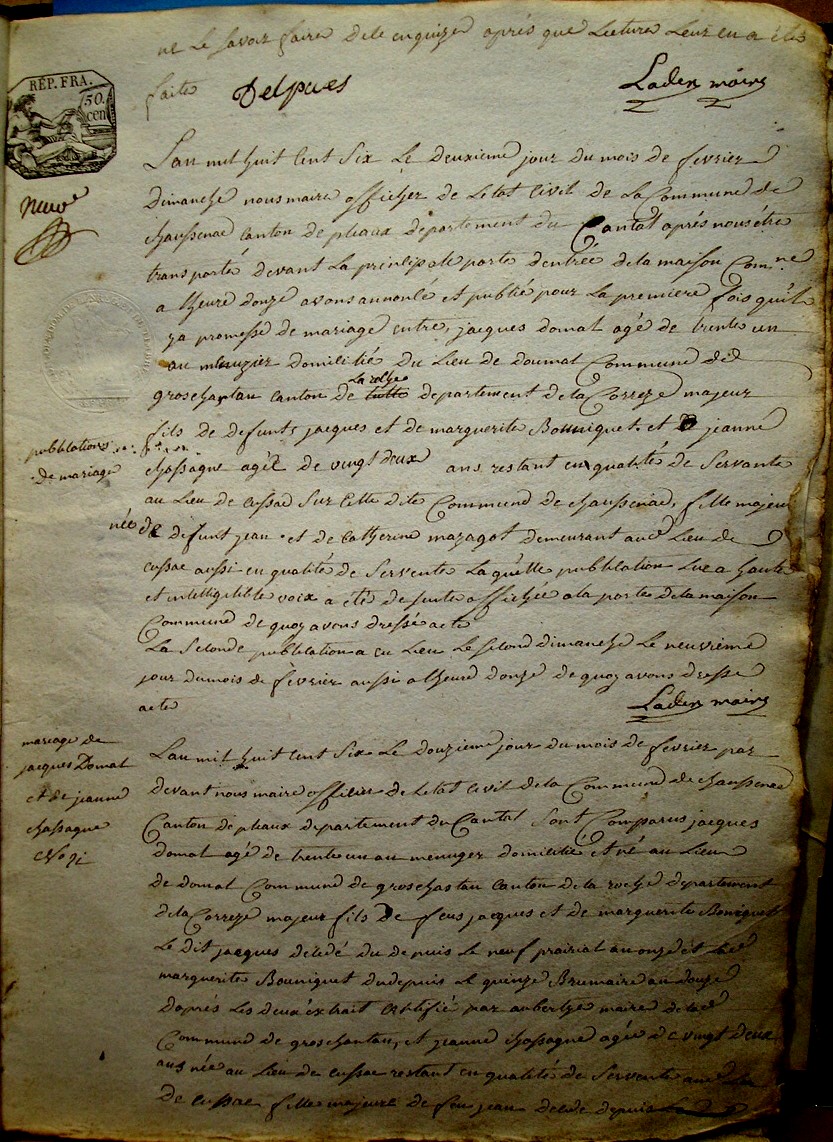 ne le savoir faire de le enquizer aprés que Lecture Leur en a été
faite Delpues Laden maire
RÉP. FRA.
50.
cen
neuve
L'an mil huit Cent Six Le deuxieme jour du mois de fevrier
dimanche nous maire officier de Letat Civil de La Commune de
chaussenac Canton de pleaux departement du Cantal aprés nous étre
transporté devant La principale porte d'entrée de la maison Comne
a Lheure donze avons annonlé et publié pour La premiere fois quil
ya promesse de mariage entre, jacques domal agé de trente un
an menuzier domilitié du Lieu de doumal Commune de
groschastau Canton de La roche tutte departement de la Correze majeur
fils de defunts jacques et de marguerite Bouniquet. et jeanne
publilations
de mariage
chassagne agée de vingt deux ans restant en qualité de Servante
au Lieu de cussac Sur Cette dite Commune de chaussenac, fille majeure
née de defunt jean et de Catherine mazagot demeurant aud Lieu de
cussac aussi en qualité de Servente Laquelle publilation Lue a haute
et intelligible voix a été de suite affichée a la porte de la maison
Commune de quoy avons dressé acte
La Selonde publilation a eu Lieu Le Selond dimanche Le neuvieme
jour du mois de fevrier aussi a Lheure donze de quoy avons dressé
acte Laden maire
mariage de
jacques Domal
et de jeanne
chassagne
L'an mil huit Cent Six Le douzieme jour du mois de fevrier par
devant nous maire officier de Letat Civil de la Commune de chaussenac
Canton de pleaux departement du Cantal Sont Comparus jacques
domal agé de trente un an menuzer domilitié et né au Lieu
de domal Commune de groschastau Canton de la roche departement
de la Correze majeur fils De feus jacques et de marguerite Bouniquet
Le dit jacques delédé du depuis Le neuf prairial an onze et lad
marguerite Bouniquet dudepuis Le quinze Brumaire an douze
daprés Les deux éxtrait Certifié par aubertie maire de lad
Commune de groschantau, et jeanne chassagne agée de vingt deux
ans née au Lieu de cussac restant en qualité de Servente aud Lieu
de cussac fille majeure de feu jean delédé depuis Le